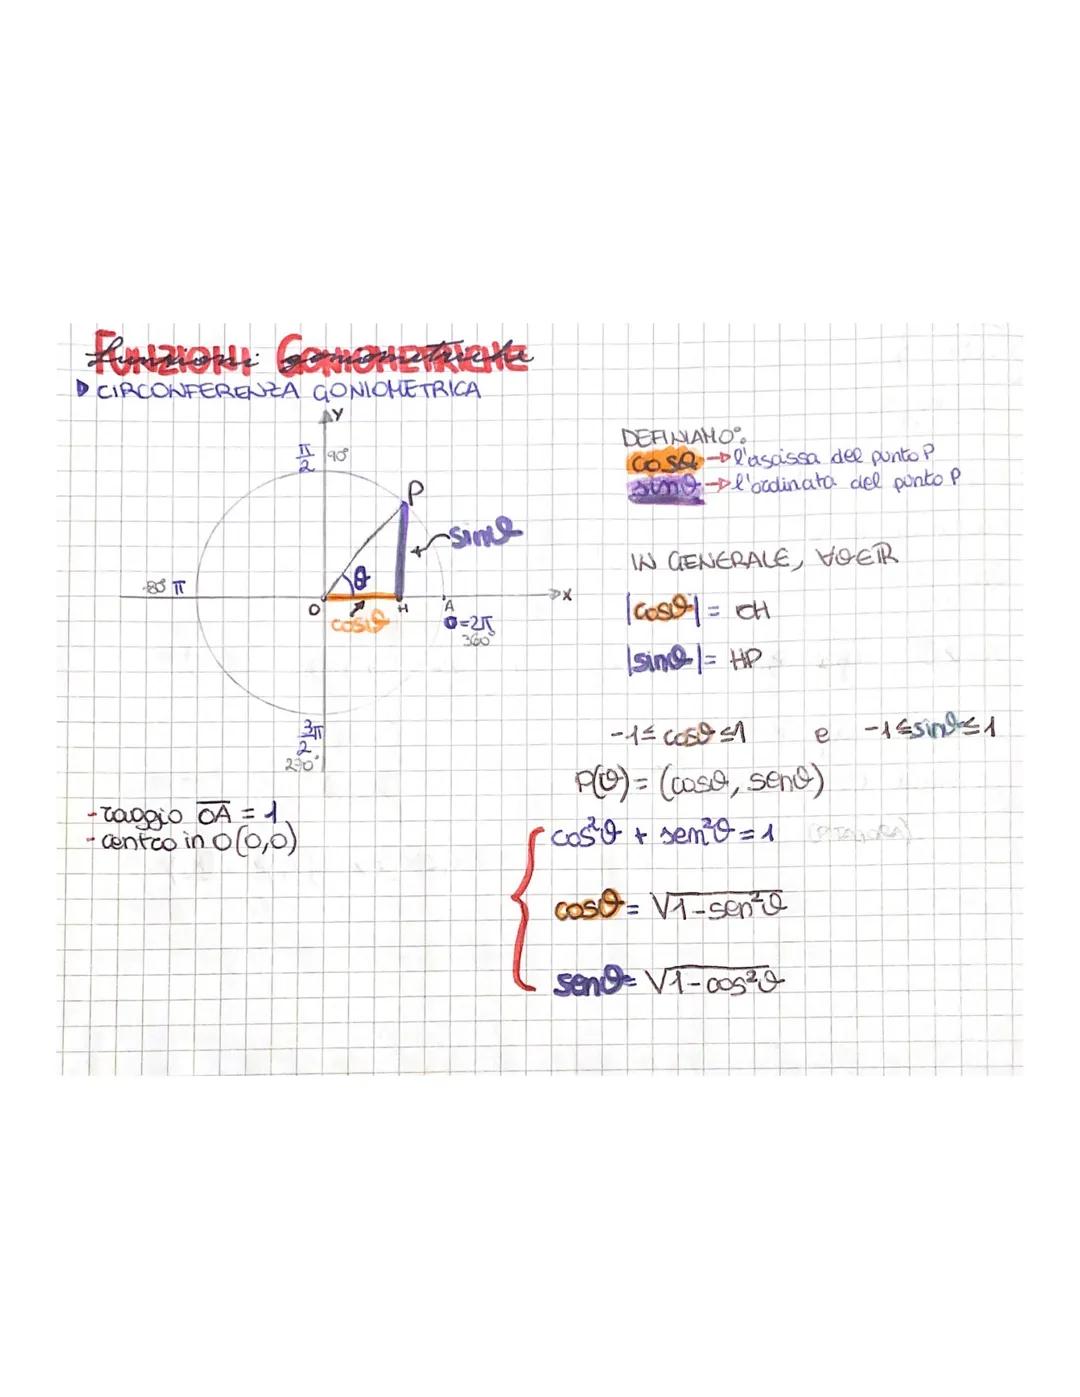 Funzioni Goniometriche
CIRCONFERENZA GONIOMETRICA
Y
π/2 90°
P
sinθ
θ
180° π
O
H
A
X
cosθ
0=2π
360°
3π/2
270°
-raggio OA = 1
-centro in O(0,0)
DEFINIAMO:
cosθ → l'ascissa del punto P
sinθ → l'ordinata del punto P
IN GENERALE, ∀θ∈R
|cosθ| = OH
|sinθ| = HP
-1≤ cosθ ≤1 e -1≤sinθ≤1
P(θ) = (cosθ, senθ)
cos²θ + sen²θ = 1 (PITAGORA)
cosθ = √1-sen²θ
senθ = √1-cos²θ